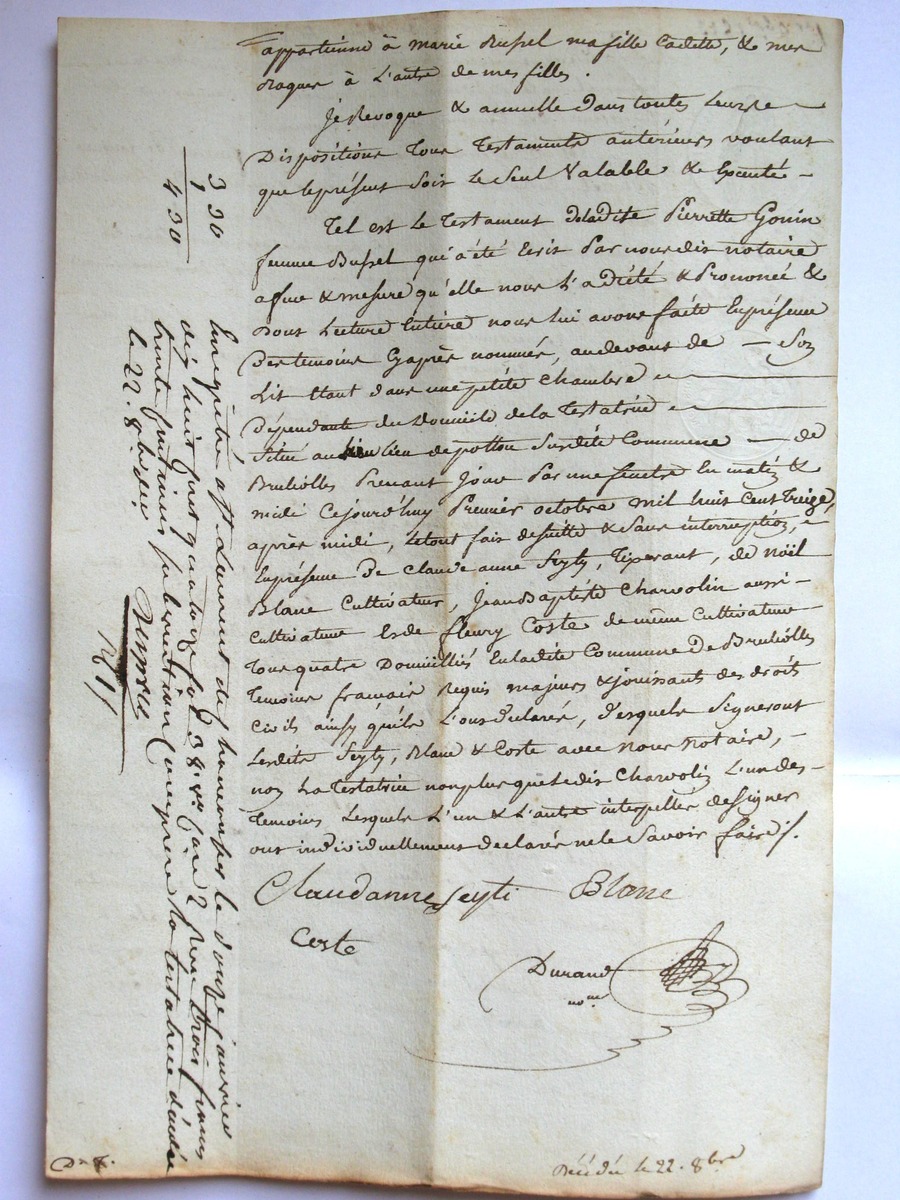 appartienne à marie Bussel ma fille Cadette, & mes
Bagues à L'autre de mes filles .
Je Revoque & annulle dans toutes Leurs
Dispositions Tous Testaments antérieurs voulant
que le présent soit Le Seul Valable & Executé –
Tel est Le Testament de Ladite Pierrette Gonin
femme Bussel qui a été Ecrit Par nous dit notaire
a fur & mesure qu'elle nous L'a dicté & Prononcé &
Dont Lecture Entière nous lui avons faite En présence
Des temoins Cy après nommés, au devant de — Son
Lit étant dans une petite Chambre
Dépendante du Domicile de la Testatrice
Situé au lieu de pottou Susdite Commune — de
Brulliolles Prenant Jour Par une fenetre En matin &
midi Cejourd'huy Premier octobre mil huit Cent Treize,
après midi, Le tout fait de suitte & Sans interruption,
En présence De Claude anne Seyty, Tisserant, de noël
Blanc Cultivateur, Jean Baptiste Charvolin aussi –
Cultivateur Et de fleury Coste de même Cultivateur
Tous quatre Domiciliés En Ladite Commune De Brulliolles
Temoins français Requis majeurs & jouissant des droits
Civils ainsy qu'ils L'ont Déclaré, Desquels Signeront
Lesdits Seyty, Blanc & Coste avec nous notaire, –
non La Testatrice non plus que Ledit Charvolin L'un des –
Temoins Lesquels L'un & L'autre interpellés de Signer
ont individuellement declarés ne le Savoir faire ./.
Claudanne seyti Blanc
Coste
Durand
nore
330
1
430
Enregistré à St Laurent de Chamousset le douze janvier
dix huit Cent quatorze fol. 38. Vo Case 2 Reçu trois francs
trente Centimes Subvention Comprise la testatrice décédée
le 22. 8bre dernier
Décédée le 22. 8bre